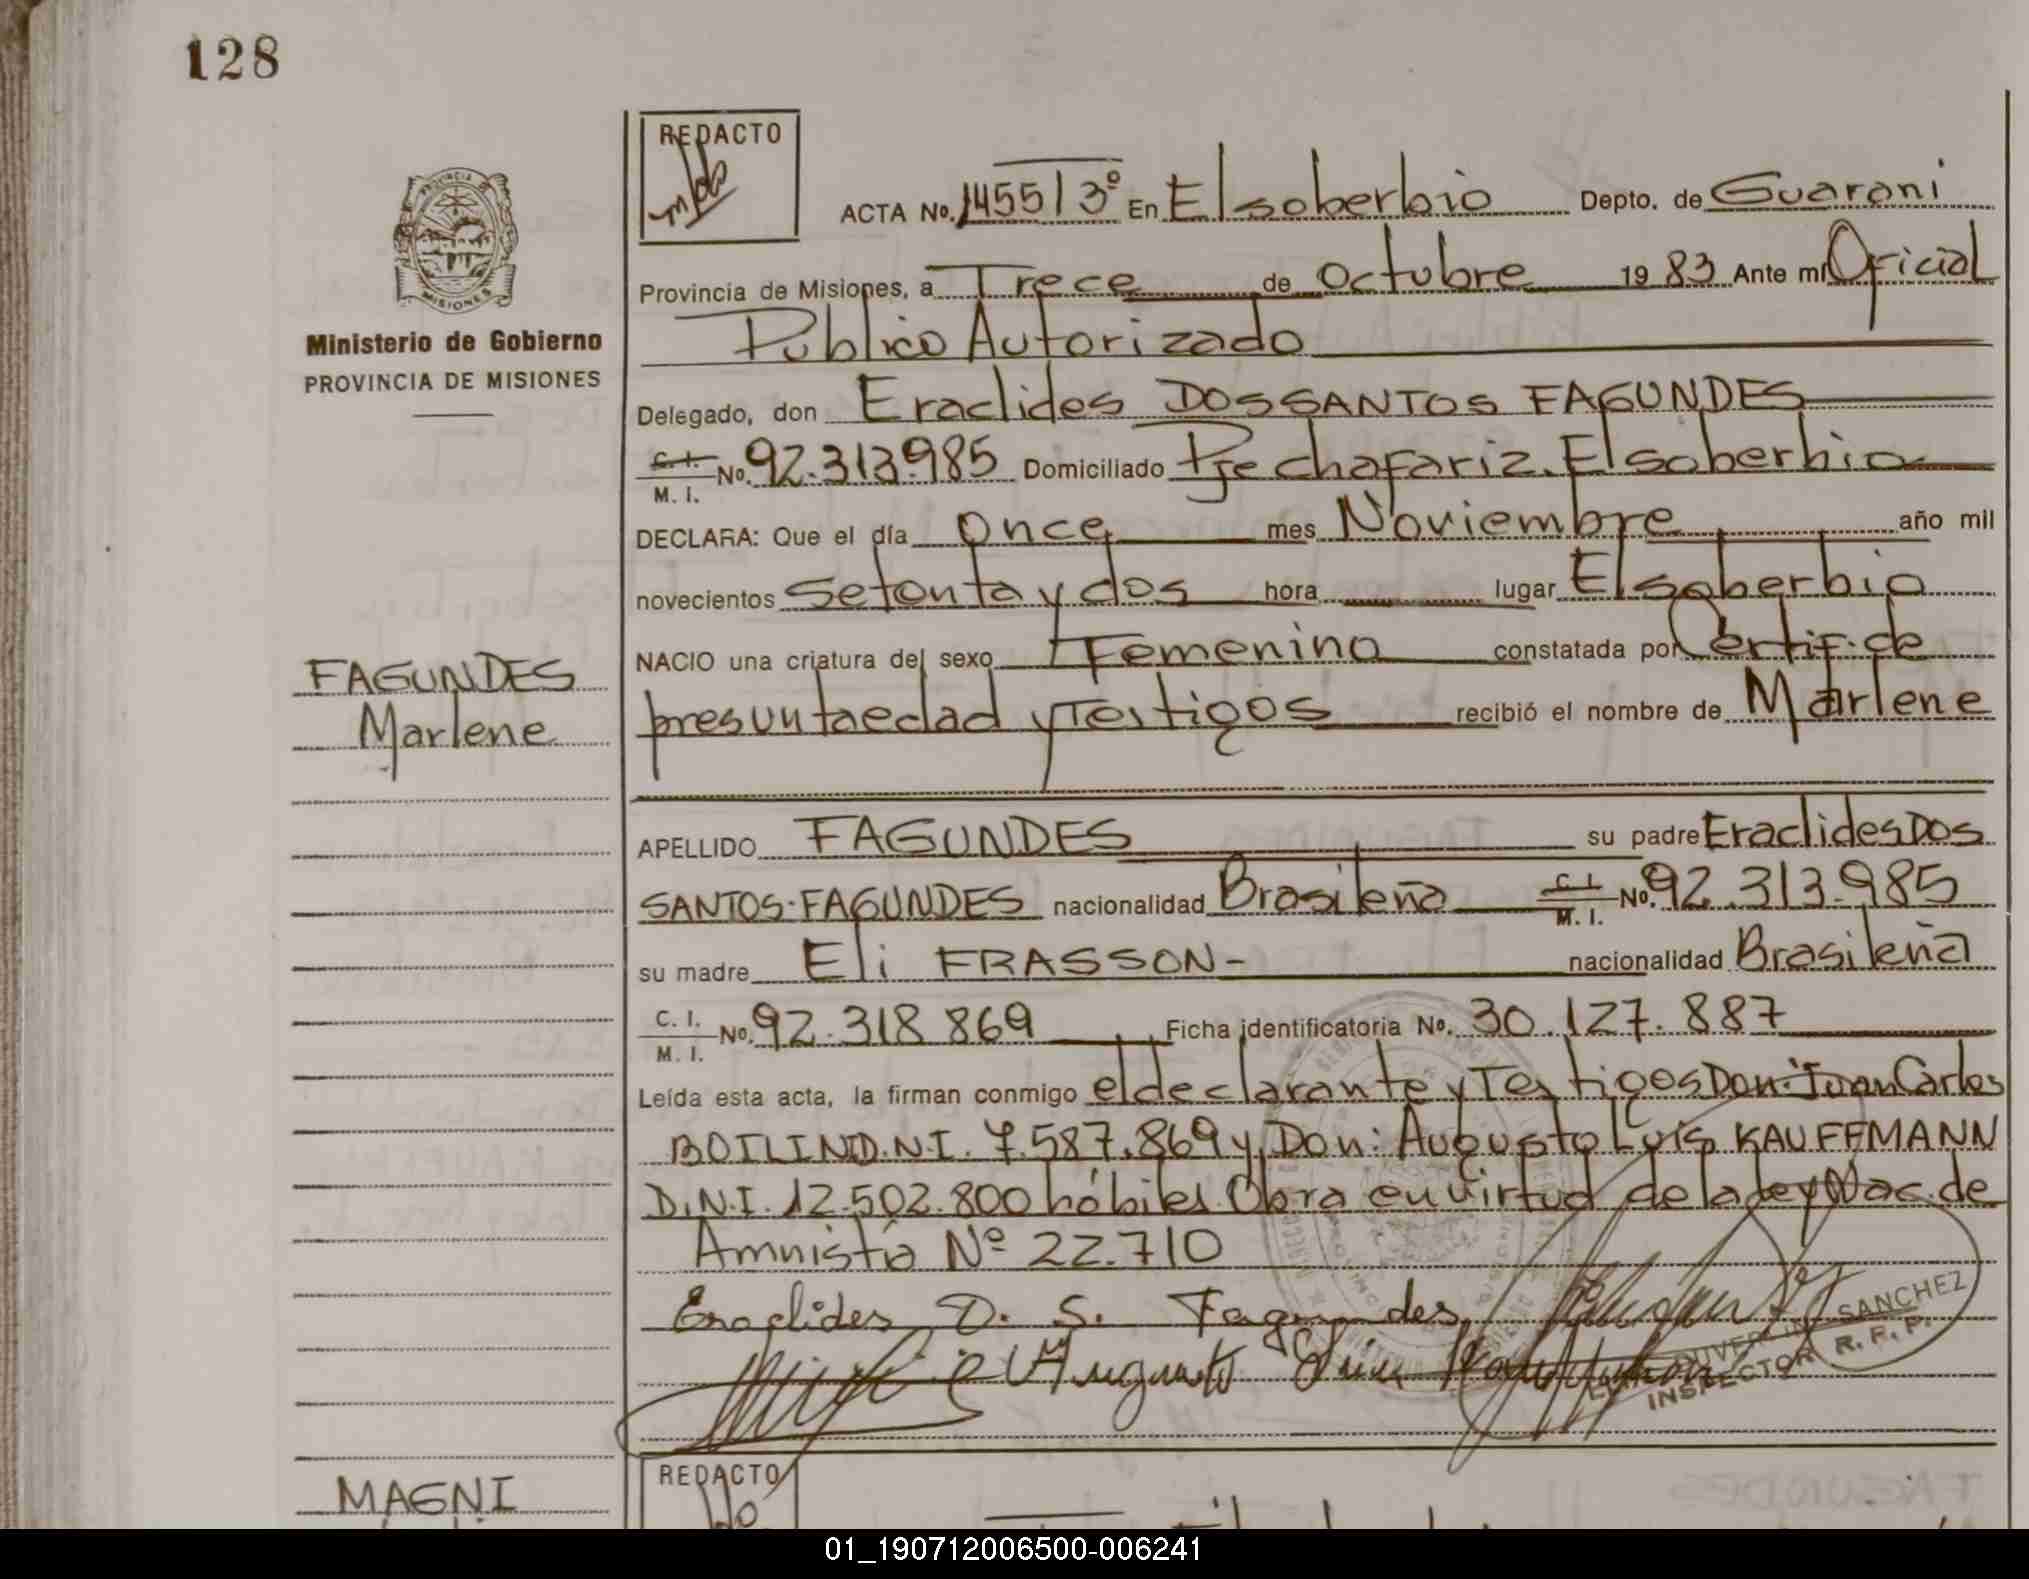 128
REDACTO
ACTA No. 1455 | 3º En El soberbio Depto. de Guarani
Provincia de Misiones, a Trece de octubre 19 83 Ante mí Oficial
Publico Autorizado
PROVINCIA DE
MISIONES
Ministerio de Gobierno
PROVINCIA DE MISIONES
Delegado, don Eraclides DOSSANTOS FAGUNDES
C. I. M. I. No. 92.313.985 Domiciliado Pje chafariz. El soberbio
DECLARA: Que el día once mes Noviembre año mil
novecientos setenta y dos hora lugar El soberbio
NACIO una criatura del sexo Femenino constatada por Certif. de
presunta edad y Testigos recibió el nombre de Marlene
FAGUNDES
Marlene
APELLIDO FAGUNDES su padre Eraclides DOS
SANTOS-FAGUNDES nacionalidad Brasileña C. I. M. I. No. 92.313.985
su madre Eli FRASSON- nacionalidad Brasileña
C. I. M. I. No. 92.318 869 Ficha identificatoria No. 30.127.887
Leída esta acta, la firman conmigo el declarante y Testigos Don: Juan Carlos
BOILIN D.N.I. 7.587.869 y Don: Augusto Luis KAUFFMANN
D.N.I. 12.502.800 hábiles. Obra en virtud de la ley Nac. de
Amnistía Nº 22.710
Eraclides D. S. Fagundes
Augusto Luis Kauffmann
SANCHEZ
INSPECTOR R. P. P.
MAGNI
REDACTO
01_190712006500-006241